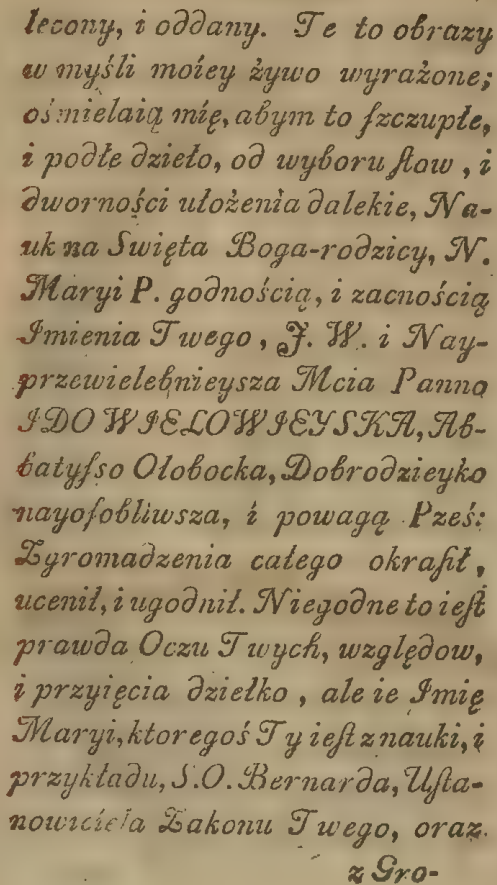 lecony, i oddany. Te to obrazy
w myśli moiey żywo wyrażone;
ośmielaią mię, abym to ſzczupłe,
i podłe dzieło, od wyboru ſłow, i
dworności ułożenia dalekie, Na-
uk na Swięta Boga-rodzicy, N.
Maryi P. godnością, i zacnością
Imienia Twego, J. W. i Nay-
przewielebnieysza Mcia Panno
IDO WIELOWIEYSKA, Ab-
batyſso Ołobocka, Dobrodzieyko
nayoſobliwsza, i powagą Prześ:
Zgromadzenia całego okraſił,
ucenił, i ugodnił. Niegodne to ieſt
prawda Oczu Twych, względow,
i przyięcia dziełko, ale ie Imię
Maryi, ktoregoś Ty ieſt z nauki, i
przykładu, S. O. Bernarda, Uſta-
nowiciela Zakonu Twego, oraz
z Gro-